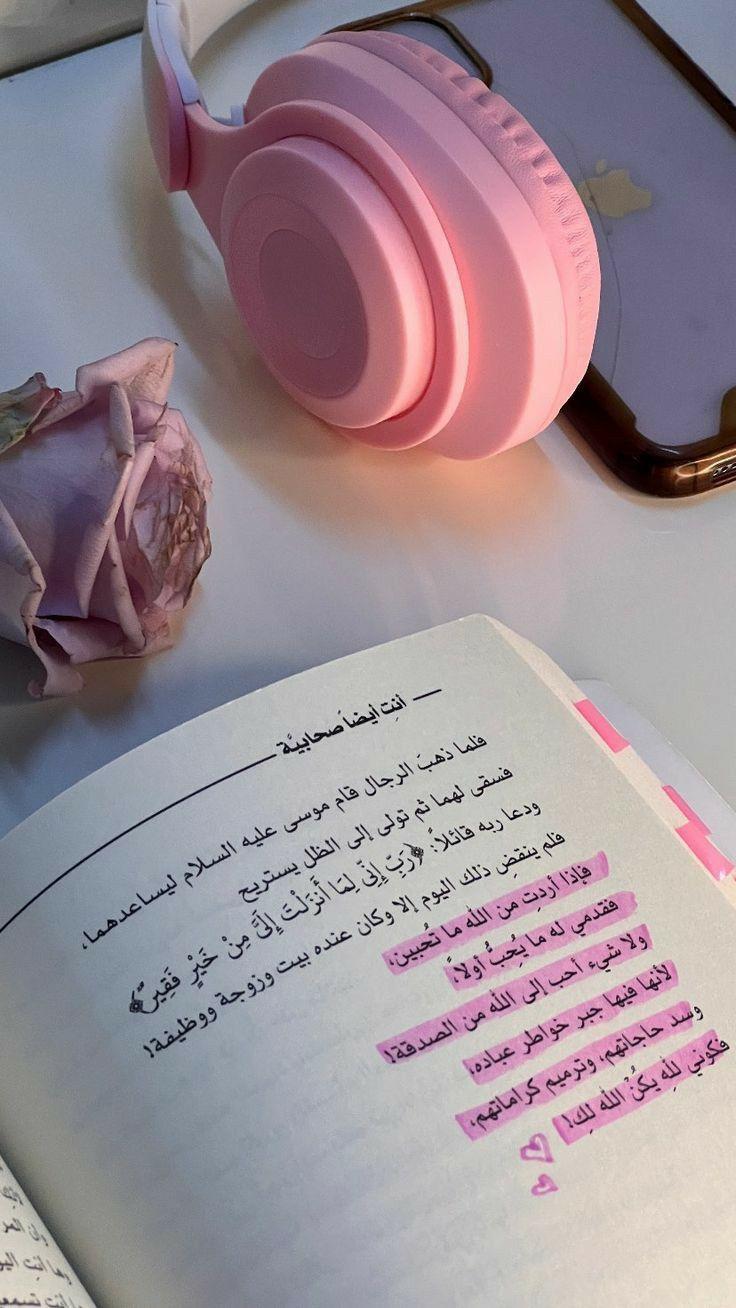 أنتِ أيضاً صحابيَّة
فلما ذهبَ الرجال قام موسى عليه السلام ليساعدهما،
فسقى لهما ثم تولى إلى الظل يستريح
ودعا ربه قائلاً: ﴿رَبِّ إِنِّي لِمَا أَنزَلْتَ إِلَيَّ مِنْ خَيْرٍ فَقِيرٌ﴾
فلم ينقضِ ذلك اليوم إلا وكان عنده بيت وزوجة ووظيفة!
فإذا أردتِ من الله ما تُحبين،
فقدمي له ما يُحِبُّ أولاً،
ولا شيء أحب إلى الله من الصدقة!
لأنها فيها جبر خواطر عباده،
وسد حاجاتهم، وترميم كراماتهم،
فكوني للهِ يكنْ الله لكِ!